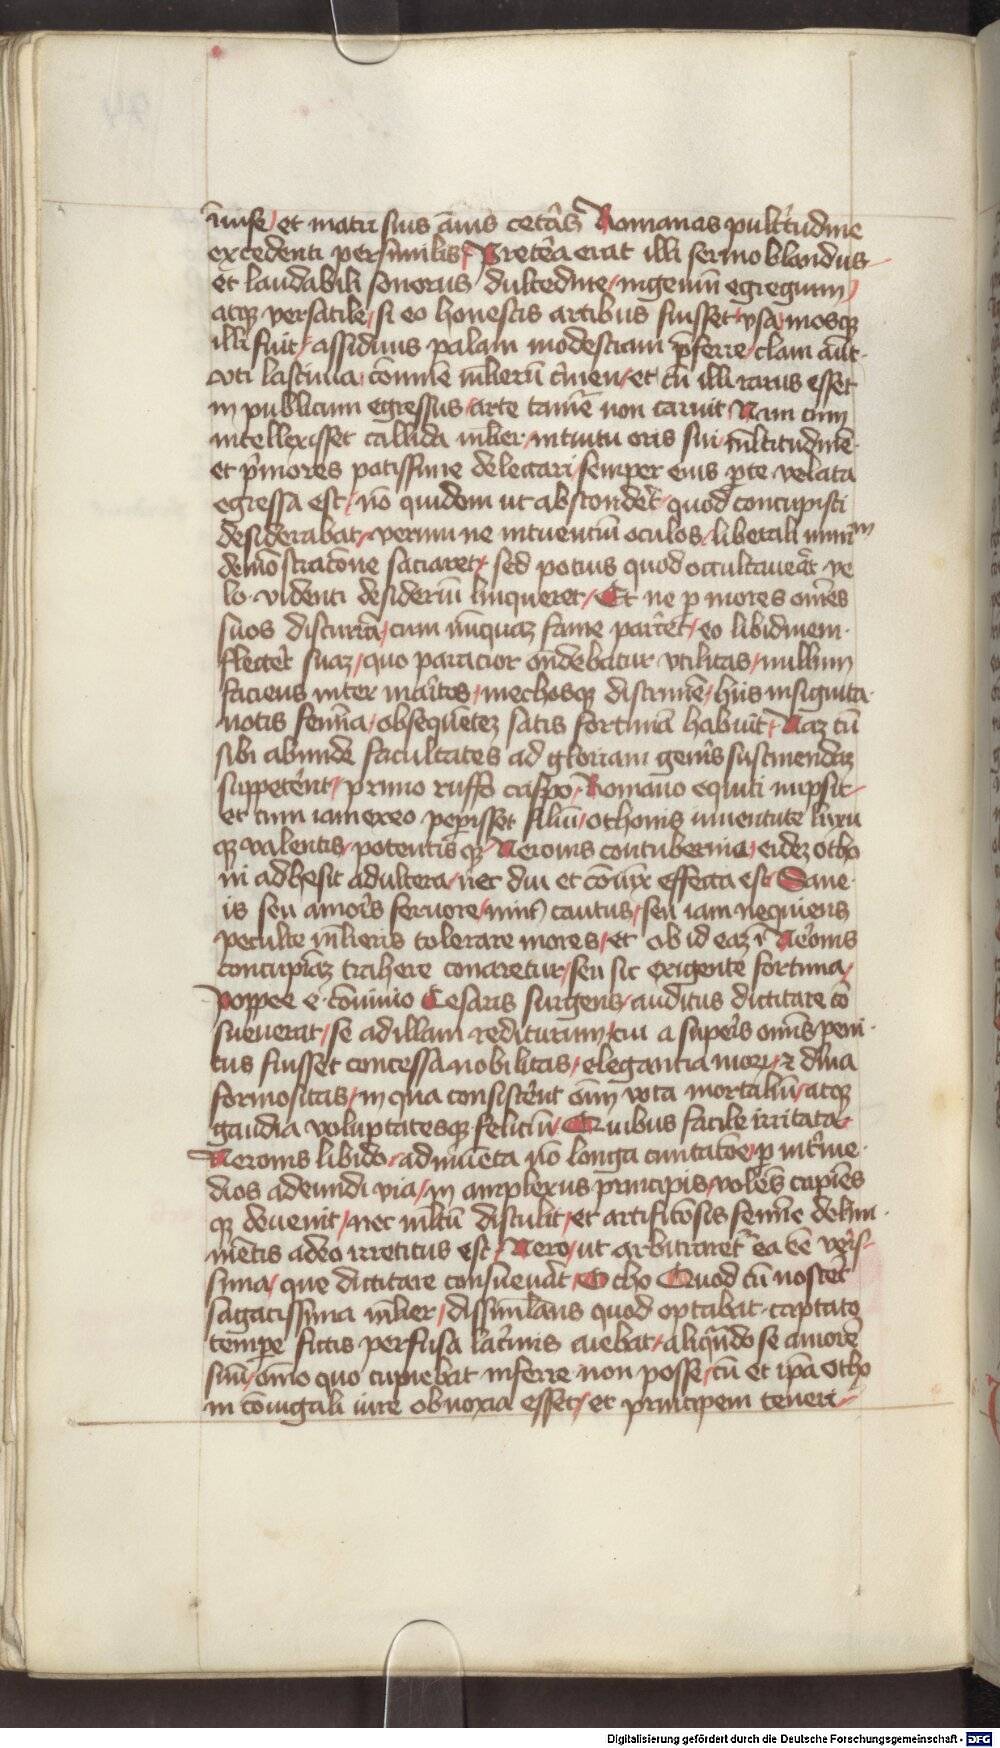 īmise / et matri sius ānis cetās Romanas pulcʳtudine
excedenti persimilis / Pretēa erat illi sermo blandus
et laudabili sonorus dulcedine / ingeniū egregium /
atqꝫ versatile / si eo honestis artibus fuisset vsa / mosqꝫ
illi fuit / assiduus palam modestiam p̄ferre / clam aūt
vti lasciuia / cōmūe mlierū cʳmen / et cū illi rarus esset
in publicum egressus / arte tamē non caruit / Nam cum
intellexisset callida mlier / intuitu oris sui / mltitudinē
et pʳmores potissime delectari / semper eius pʳte velata
egressa est / nō quidem ut absconderꝫ / quod concupisci
desiderabat / verum ne intuentiū oculos / liberali nimiū
demōstratōne saciaret / sed potius quod occultauerat ve
lo / videnti desideriū linqueret / Et ne p mores omēs
suos discurrā / cum nūnquaꝫ fame parceret / eo libidinem
flecteret suaꝫ / quo paracior ondebatur vtilitas / nullum
faciens inter maritos / mechosqꝫ discrimē / hiis insignita
notis femina / obsequēteꝫ satis fortunā habuit / Naꝫ cū
sibi abunde facultates ad gloriam genʳis sustinendaꝫ
suppeterent / primo ruffo crispo / Romano equiti nupsit
et cum iam ex eo peperisset filiū / othonis iuuentute luxu
qꝫ valentis / potentisqꝫ Neronis contubernia / eideꝫ otho
ni adhesit adultera / nec diu et cōiūx effecta est Sane
is seu amorʳs feruore / minus cautus / seu iam nequiens
peculce mlieris tolerare mores / et ob id eaꝫ ī Neronis
concupiaꝫ trahere conaretur / seu sic exigente fortuna /
poppee e conuiuio Cesaris surgens / auditus dictitare cō
sueuerat / se ad illam rediturum / cui a superis omīs peni
tus fuisset concessa nobilitas / elegancia moꝝ / ⁊ diuīa
formositas / in qua consisterent oīm vota mortaliū / atqꝫ
gaudia voluptatesqꝫ feliciū / Quibus facile irritata
Neronis libido / adinuēta nō longa cunctatōe / p intʳme
dios adeundi via / in amplexus principis / volēs capiēs
qꝫ deuenit / nec mltū distulit / et artificōsis femīe delini
mētis adeo irretitus est Nero / ut arbitraretʳ ea eē verʳs
sima / que dictitare consueuerat Otho Quod cū nosceret
sagacissima mlier / dissimulans quod optabat / captato
tempe fictis perfusa lacʳmis aiebat / aliquādo se amorē
suū / oīno quo cupiebat inferre non posse / cū et ipā Otho
ni coniugali iure obnoxia esset / et principem teneri
Digitalisierung gefördert durch die Deutsche Forschungsgemeinschaft - DFG